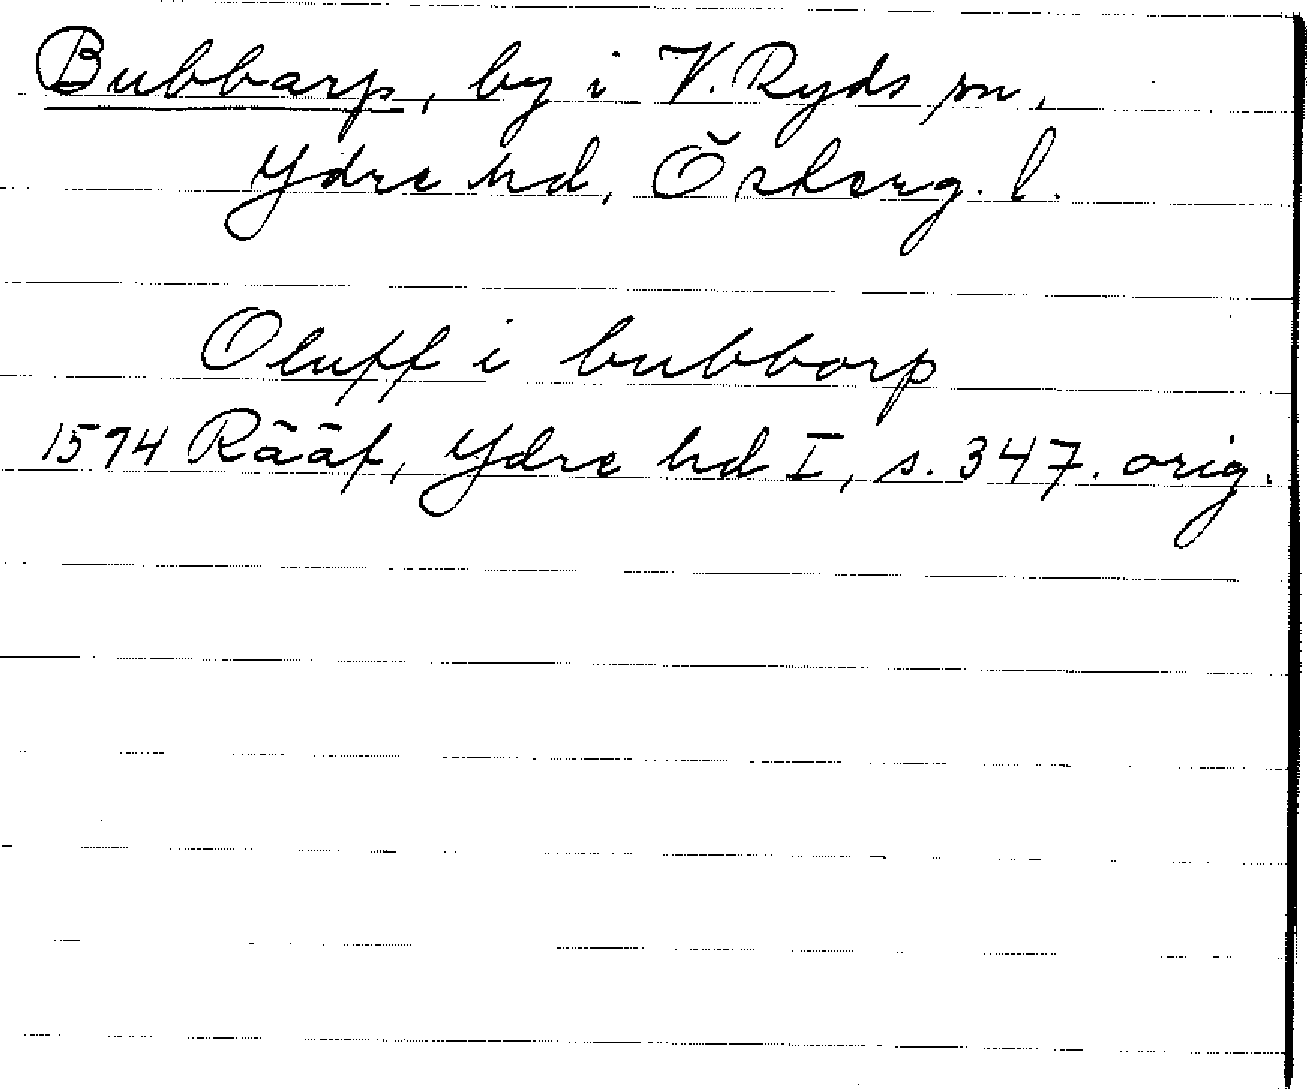 Bubbarp, by i V. Ryds sn,
Ydre hd, Österg. l.
Oluff i bubborp
1574 Rääf, Ydre hd I, s. 347. orig.